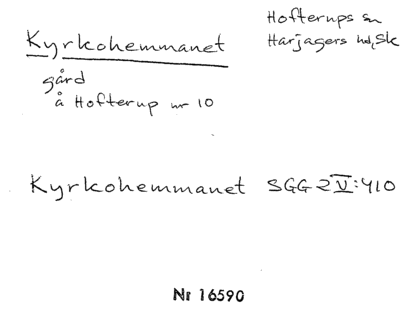 Kyrkohemmanet
Hofterups sn
Harjagers hd, Sk
gård
å Hofterup nr 10
Kyrkohemmanet SGG 2 V:410
Nr 16590